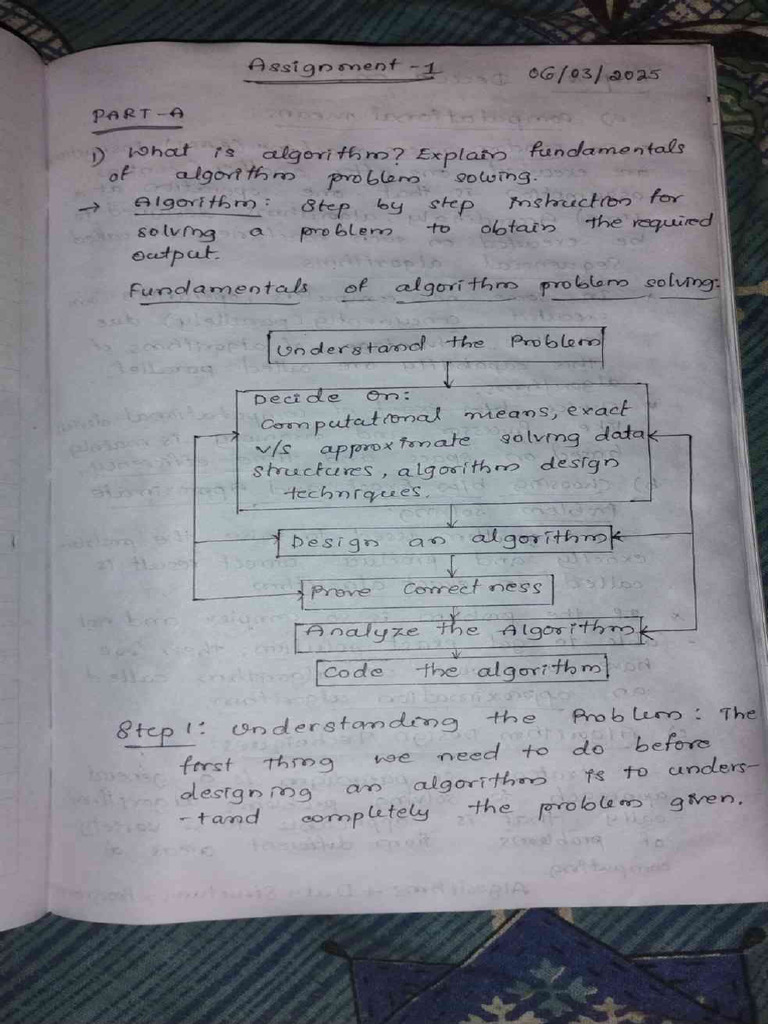 Assignment - 1
06/03/2025
PART-A
1) What is algorithm? Explain fundamentals
of algorithm problem solving.
→ Algorithm: Step by step instruction for
solving a problem to obtain the required
output.
Fundamentals of algorithm problem solving:
Understand the Problem
Decide on:
Computational means, exact
v/s approximate solving data
structures, algorithm design
techniques.
Design an algorithm
Prove Correctness
Analyze the Algorithm
Code the algorithm
Step 1: Understanding the Problem: The
first thing we need to do before
designing an algorithm is to unders-
-tand completely the problem given.